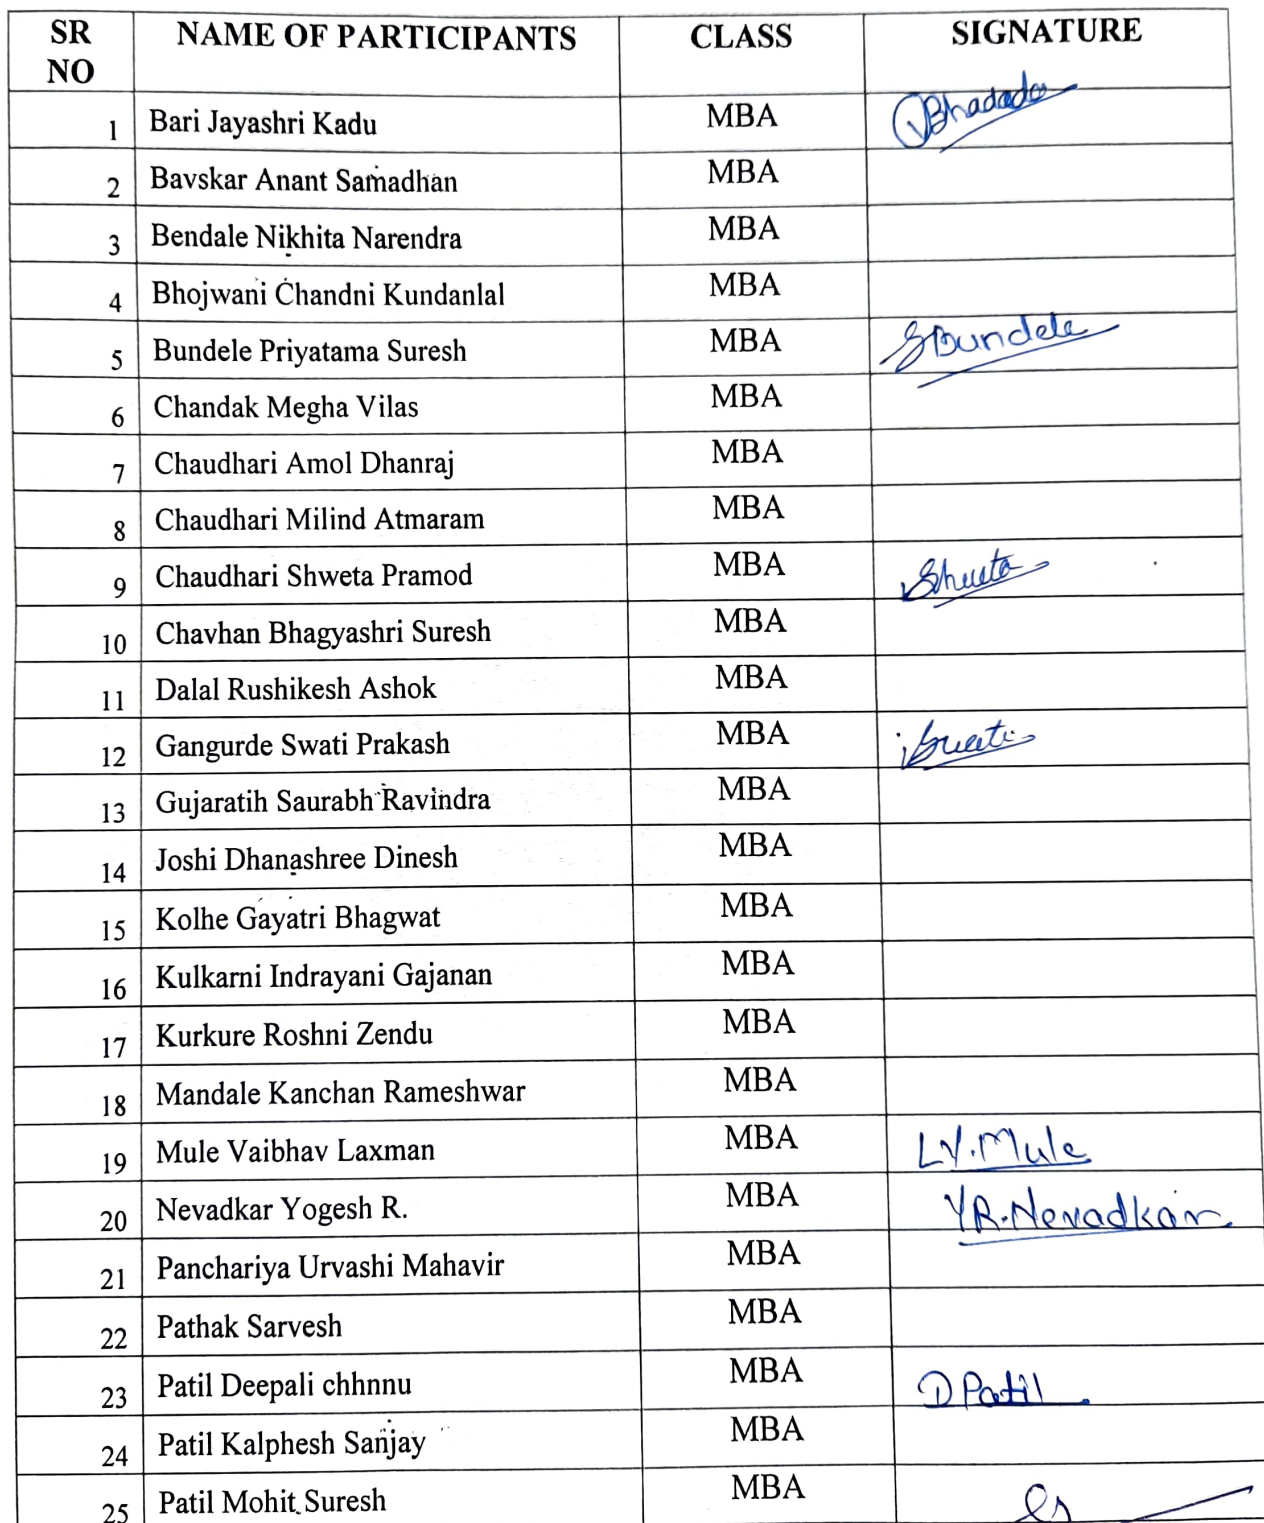 SR NO NAME OF PARTICIPANTS CLASS SIGNATURE
1 Bari Jayashri Kadu MBA
2 Bavskar Anant Samadhan MBA
3 Bendale Nikhita Narendra MBA
4 Bhojwani Chandni Kundanlal MBA
5 Bundele Priyatama Suresh MBA SBundele
6 Chandak Megha Vilas MBA
7 Chaudhari Amol Dhanraj MBA
8 Chaudhari Milind Atmaram MBA
9 Chaudhari Shweta Pramod MBA Shweta
10 Chavhan Bhagyashri Suresh MBA
11 Dalal Rushikesh Ashok MBA
12 Gangurde Swati Prakash MBA Swati
13 Gujaratih Saurabh Ravindra MBA
14 Joshi Dhanashree Dinesh MBA
15 Kolhe Gayatri Bhagwat MBA
16 Kulkarni Indrayani Gajanan MBA
17 Kurkure Roshni Zendu MBA
18 Mandale Kanchan Rameshwar MBA
19 Mule Vaibhav Laxman MBA LV.Mule
20 Nevadkar Yogesh R. MBA YR.Nevadkar
21 Panchariya Urvashi Mahavir MBA
22 Pathak Sarvesh MBA
23 Patil Deepali chhnnu MBA D Patil
24 Patil Kalphesh Sanjay MBA
25 Patil Mohit Suresh MBA